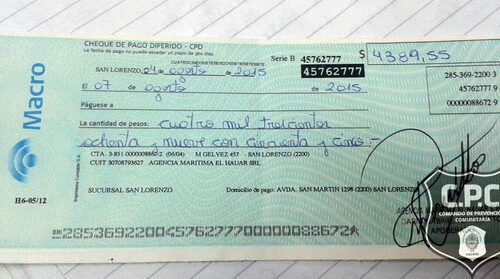 CHEQUE DE PAGO DIFERIDO - CPD
La fecha de pago no puede exceder un plazo de 360 días.
Serie B 45762777 $ 4389,55
CUATROCINCOSIETESEISDOSSIETESIETESIETE
SAN LORENZO, 04 de agosto de 2015 45762777
El 07 de agosto de 2015
285-369-2200 3
45762777 9
00000088672 9
Páguese a
La cantidad de pesos: cuatro mil trescientos
ochenta y nueve con cincuenta y cinco.-
CTA. 3-851-0000008867-2 (06/04) M GELVEZ 457 - SAN LORENZO (2200)
CUIT 30708793627 AGENCIA MARITIMA EL HAUAR SRL
SUCURSAL SAN LORENZO
Domicilio de pago: AVDA. SAN MARTIN 1298 (2200) SAN LORENZO
Macro
H6-05/12
C.P.C.
COMANDO DE PREVENCION
COMUNITARIA
AGENCIA
APODER
285369220045762777000000088672